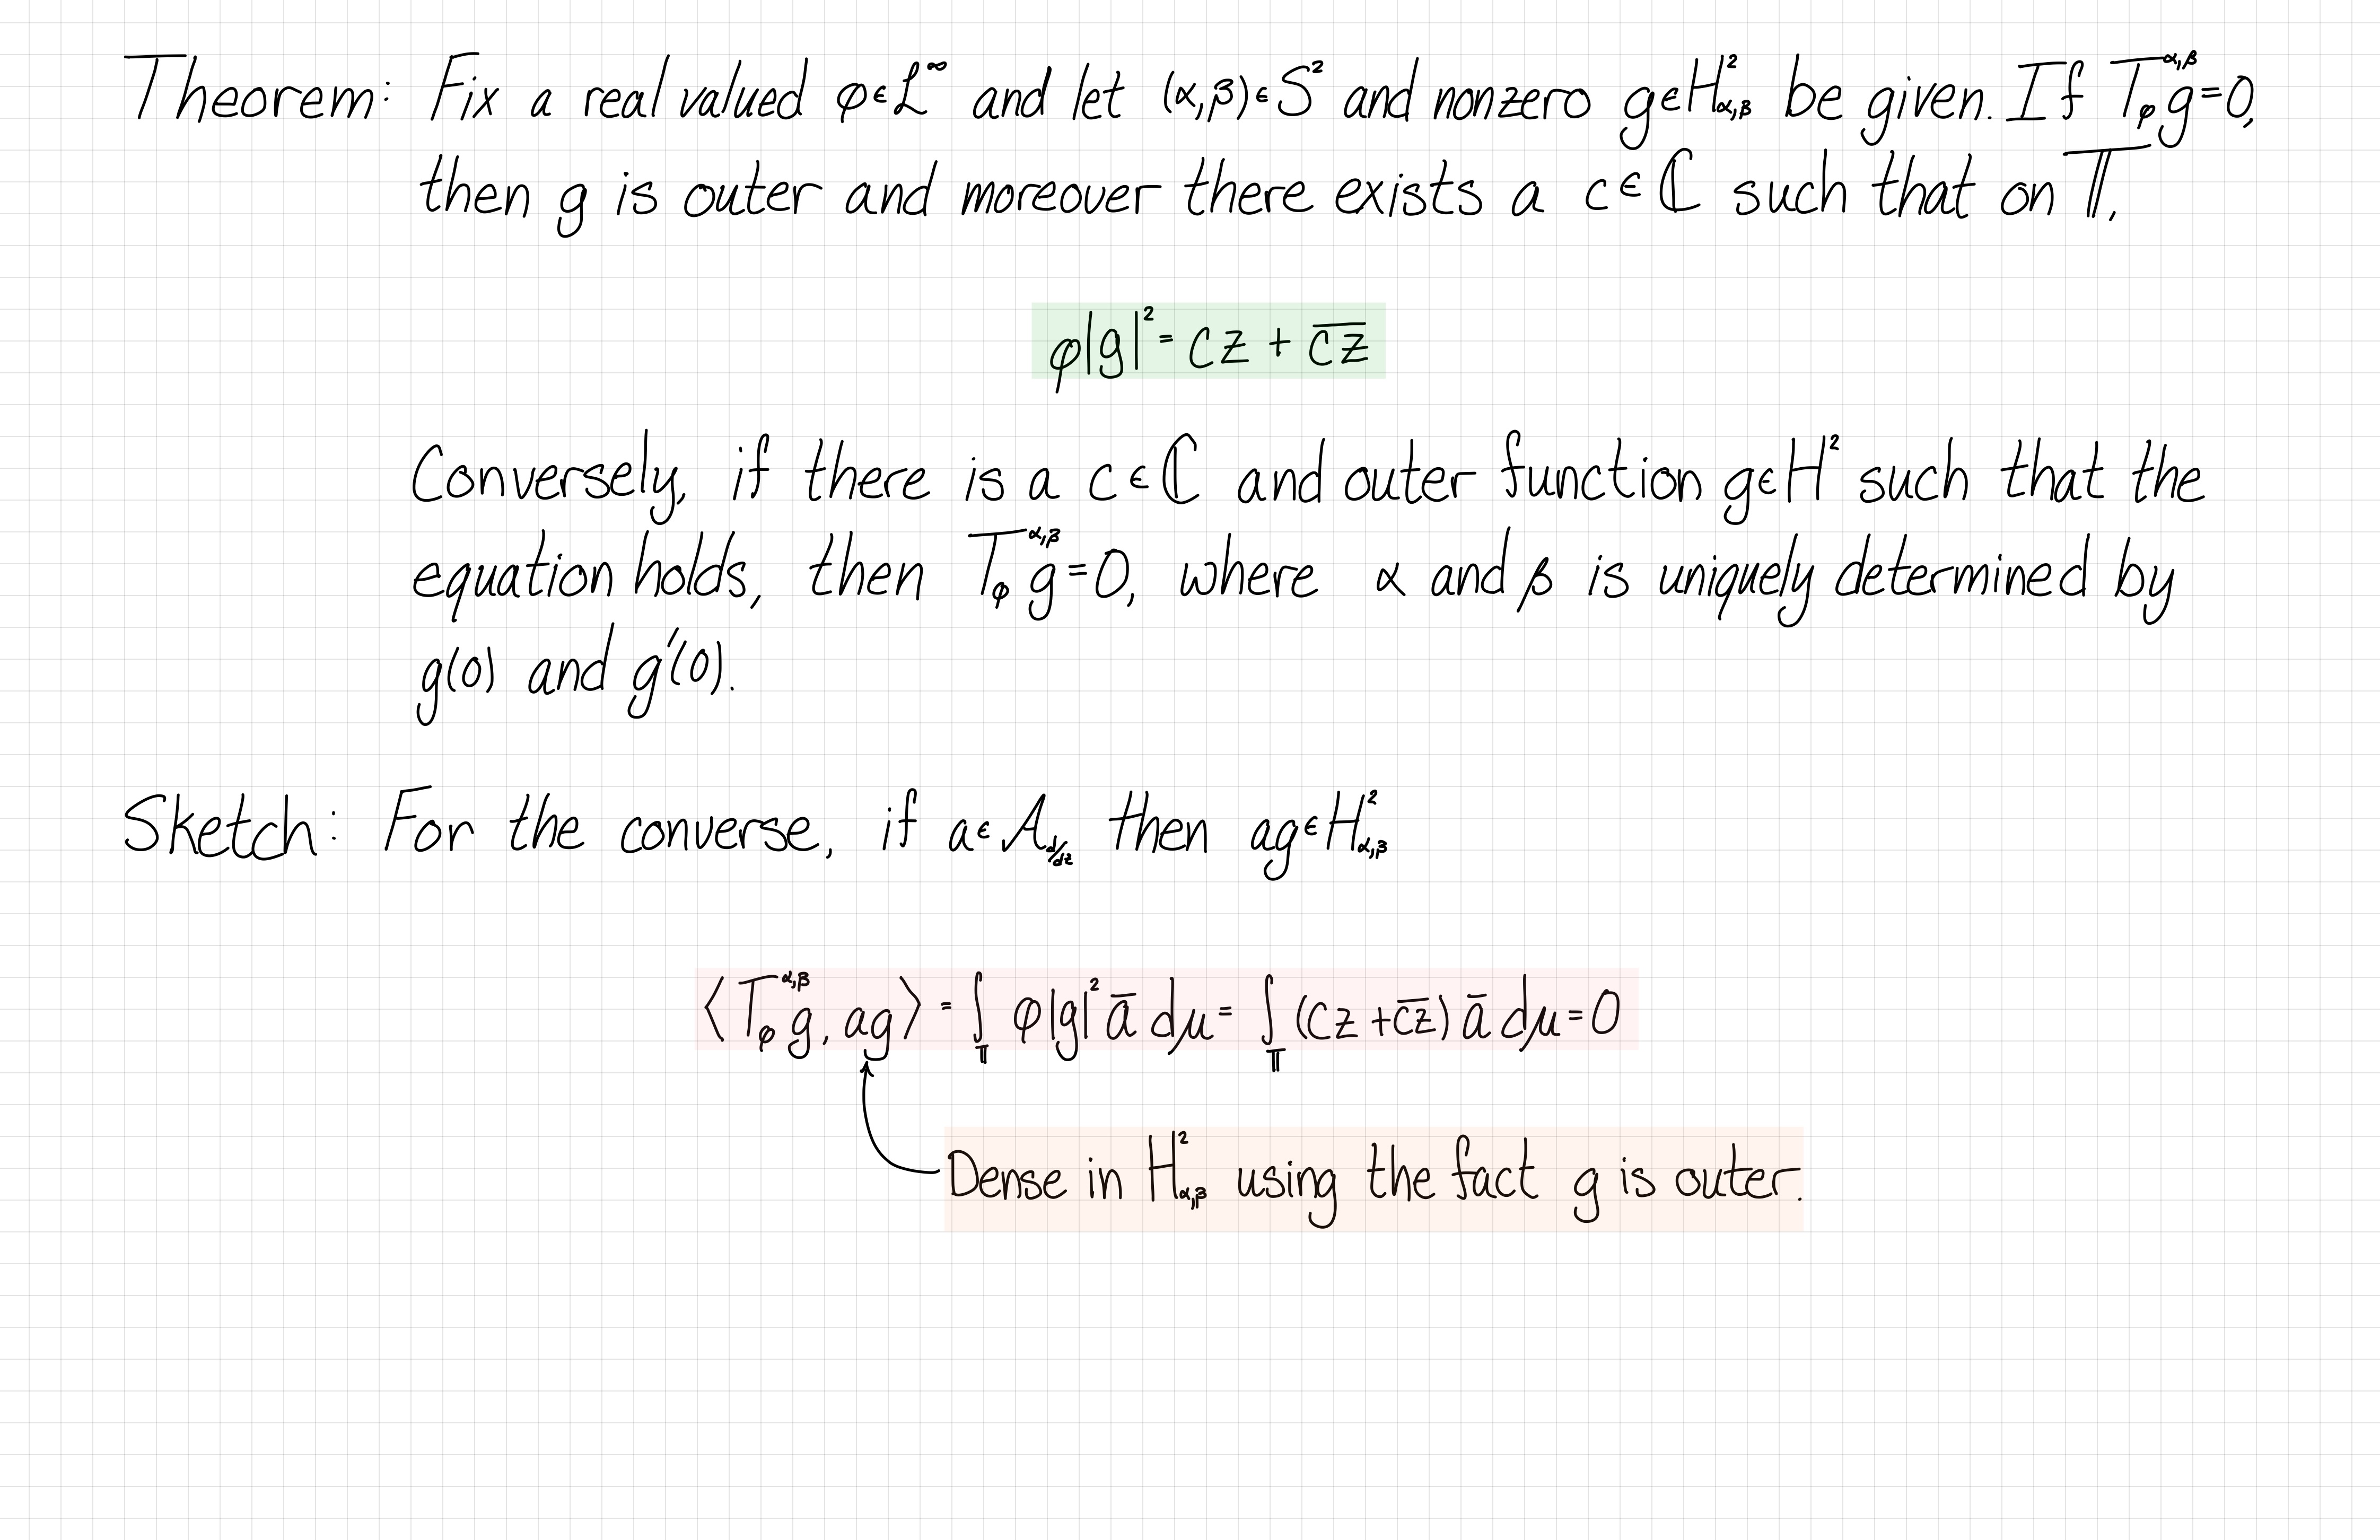 Theorem: Fix a real valued φ∈L^∞ and let (α,β)∈S² and nonzero g∈H²_{α,β} be given. If T_φ^{α,β} g=0,
then g is outer and moreover there exists a c∈ℂ such that on 𝕋,
φ|g|² = cz + \overline{cz}
Conversely, if there is a c∈ℂ and outer function g∈H² such that the
equation holds, then T_φ^{α,β} g=0, where α and β is uniquely determined by
g(0) and g′(0).
Sketch: For the converse, if a∈A_{d/dz} then ag∈H²_{α,β}
⟨T_φ^{α,β} g, ag⟩ = ∫_𝕋 φ|g|² \overline{a} dμ = ∫_𝕋 (cz + \overline{cz}) \overline{a} dμ = 0
Dense in H²_{α,β} using the fact g is outer.